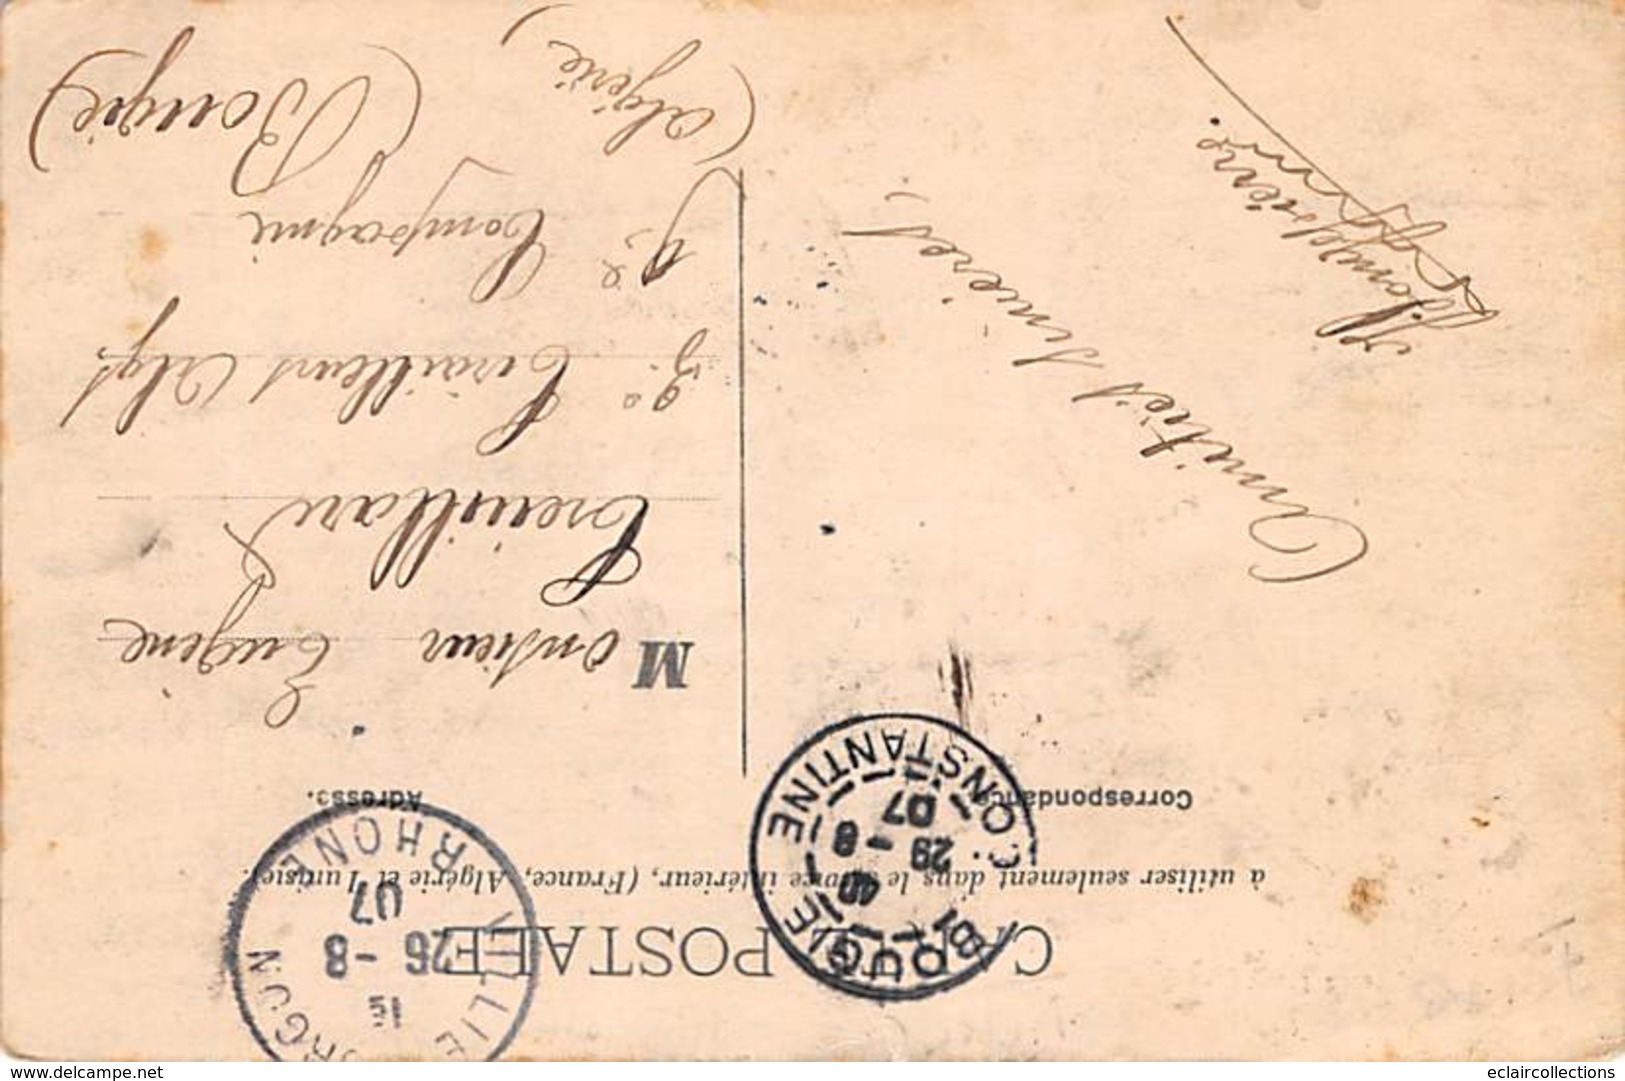 CARTE POSTALE
à utiliser seulement dans le service intérieur, (France, Algérie et Tunisie).
Correspondance
Adresse.
BOUGIE
CONSTANTINE
29 - 8
07
26 - 8
07
RHONE
Amitiés sincères,
Monsieur Eugène
Treuillard
3e Tirailleurs Algs
1e Compagnie
(Bougie)
(Algérie)
delcampe.net
eclaircollections